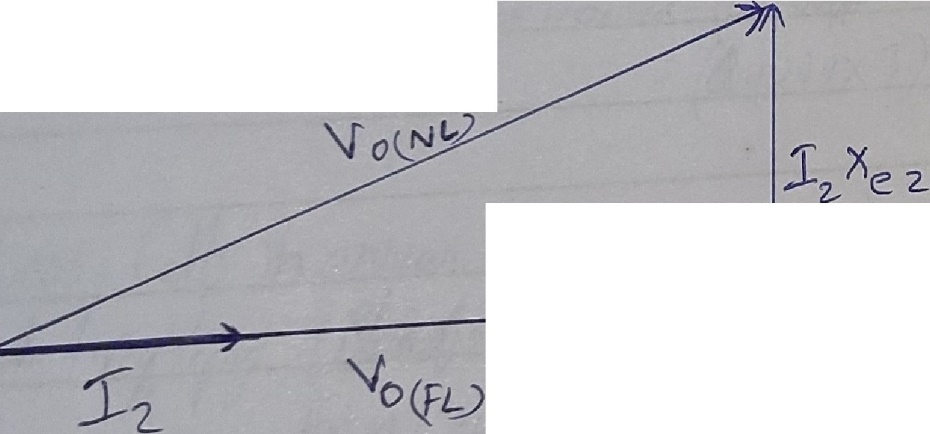 V₀(NL)
I₂Xₑ₂
I₂
V₀(FL)